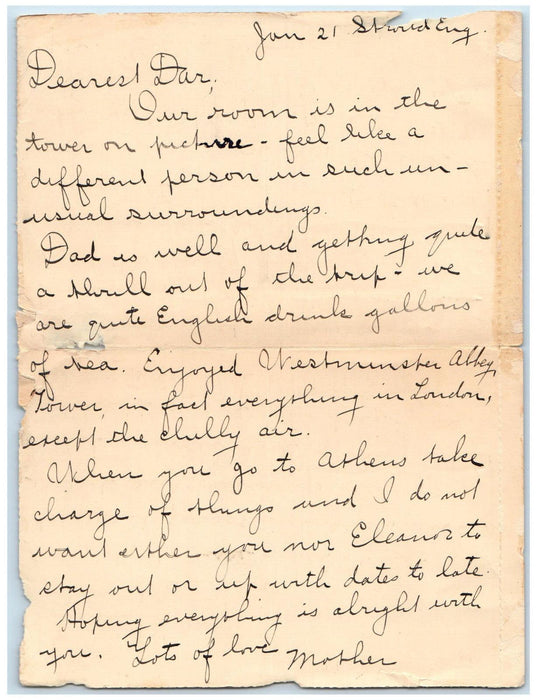 Jan 21 Stroud Eng.
Dearest Dar,
Our room is in the
tower on picture - feel like a
different person in such un-
usual surroundings.
Dad is well and getting quite
a thrill out of the trip - we
are quite English drink gallons
of tea. Enjoyed Westminster Abbey,
Tower, in fact everything in London,
except the chilly air.
When you go to Athens take
charge of things and I do not
want either you nor Eleanor to
stay out or up with dates to late.
Hoping everything is alright with
you. Lots of love Mother